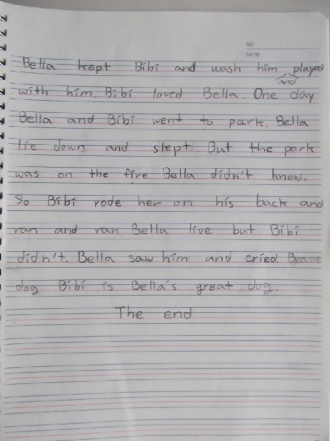 NO.
DATE
Bella kept Bibi and wash him played
and
with him. Bibi loved Bella. One day
Bella and Bibi went to park. Bella
lie down and slept. But the park
was on the fire Bella didn't know.
So Bibi rode her on his back and
ran and ran Bella live but Bibi
didn't. Bella saw him and cried Brave
dog Bibi is Bella's great dog.
The end